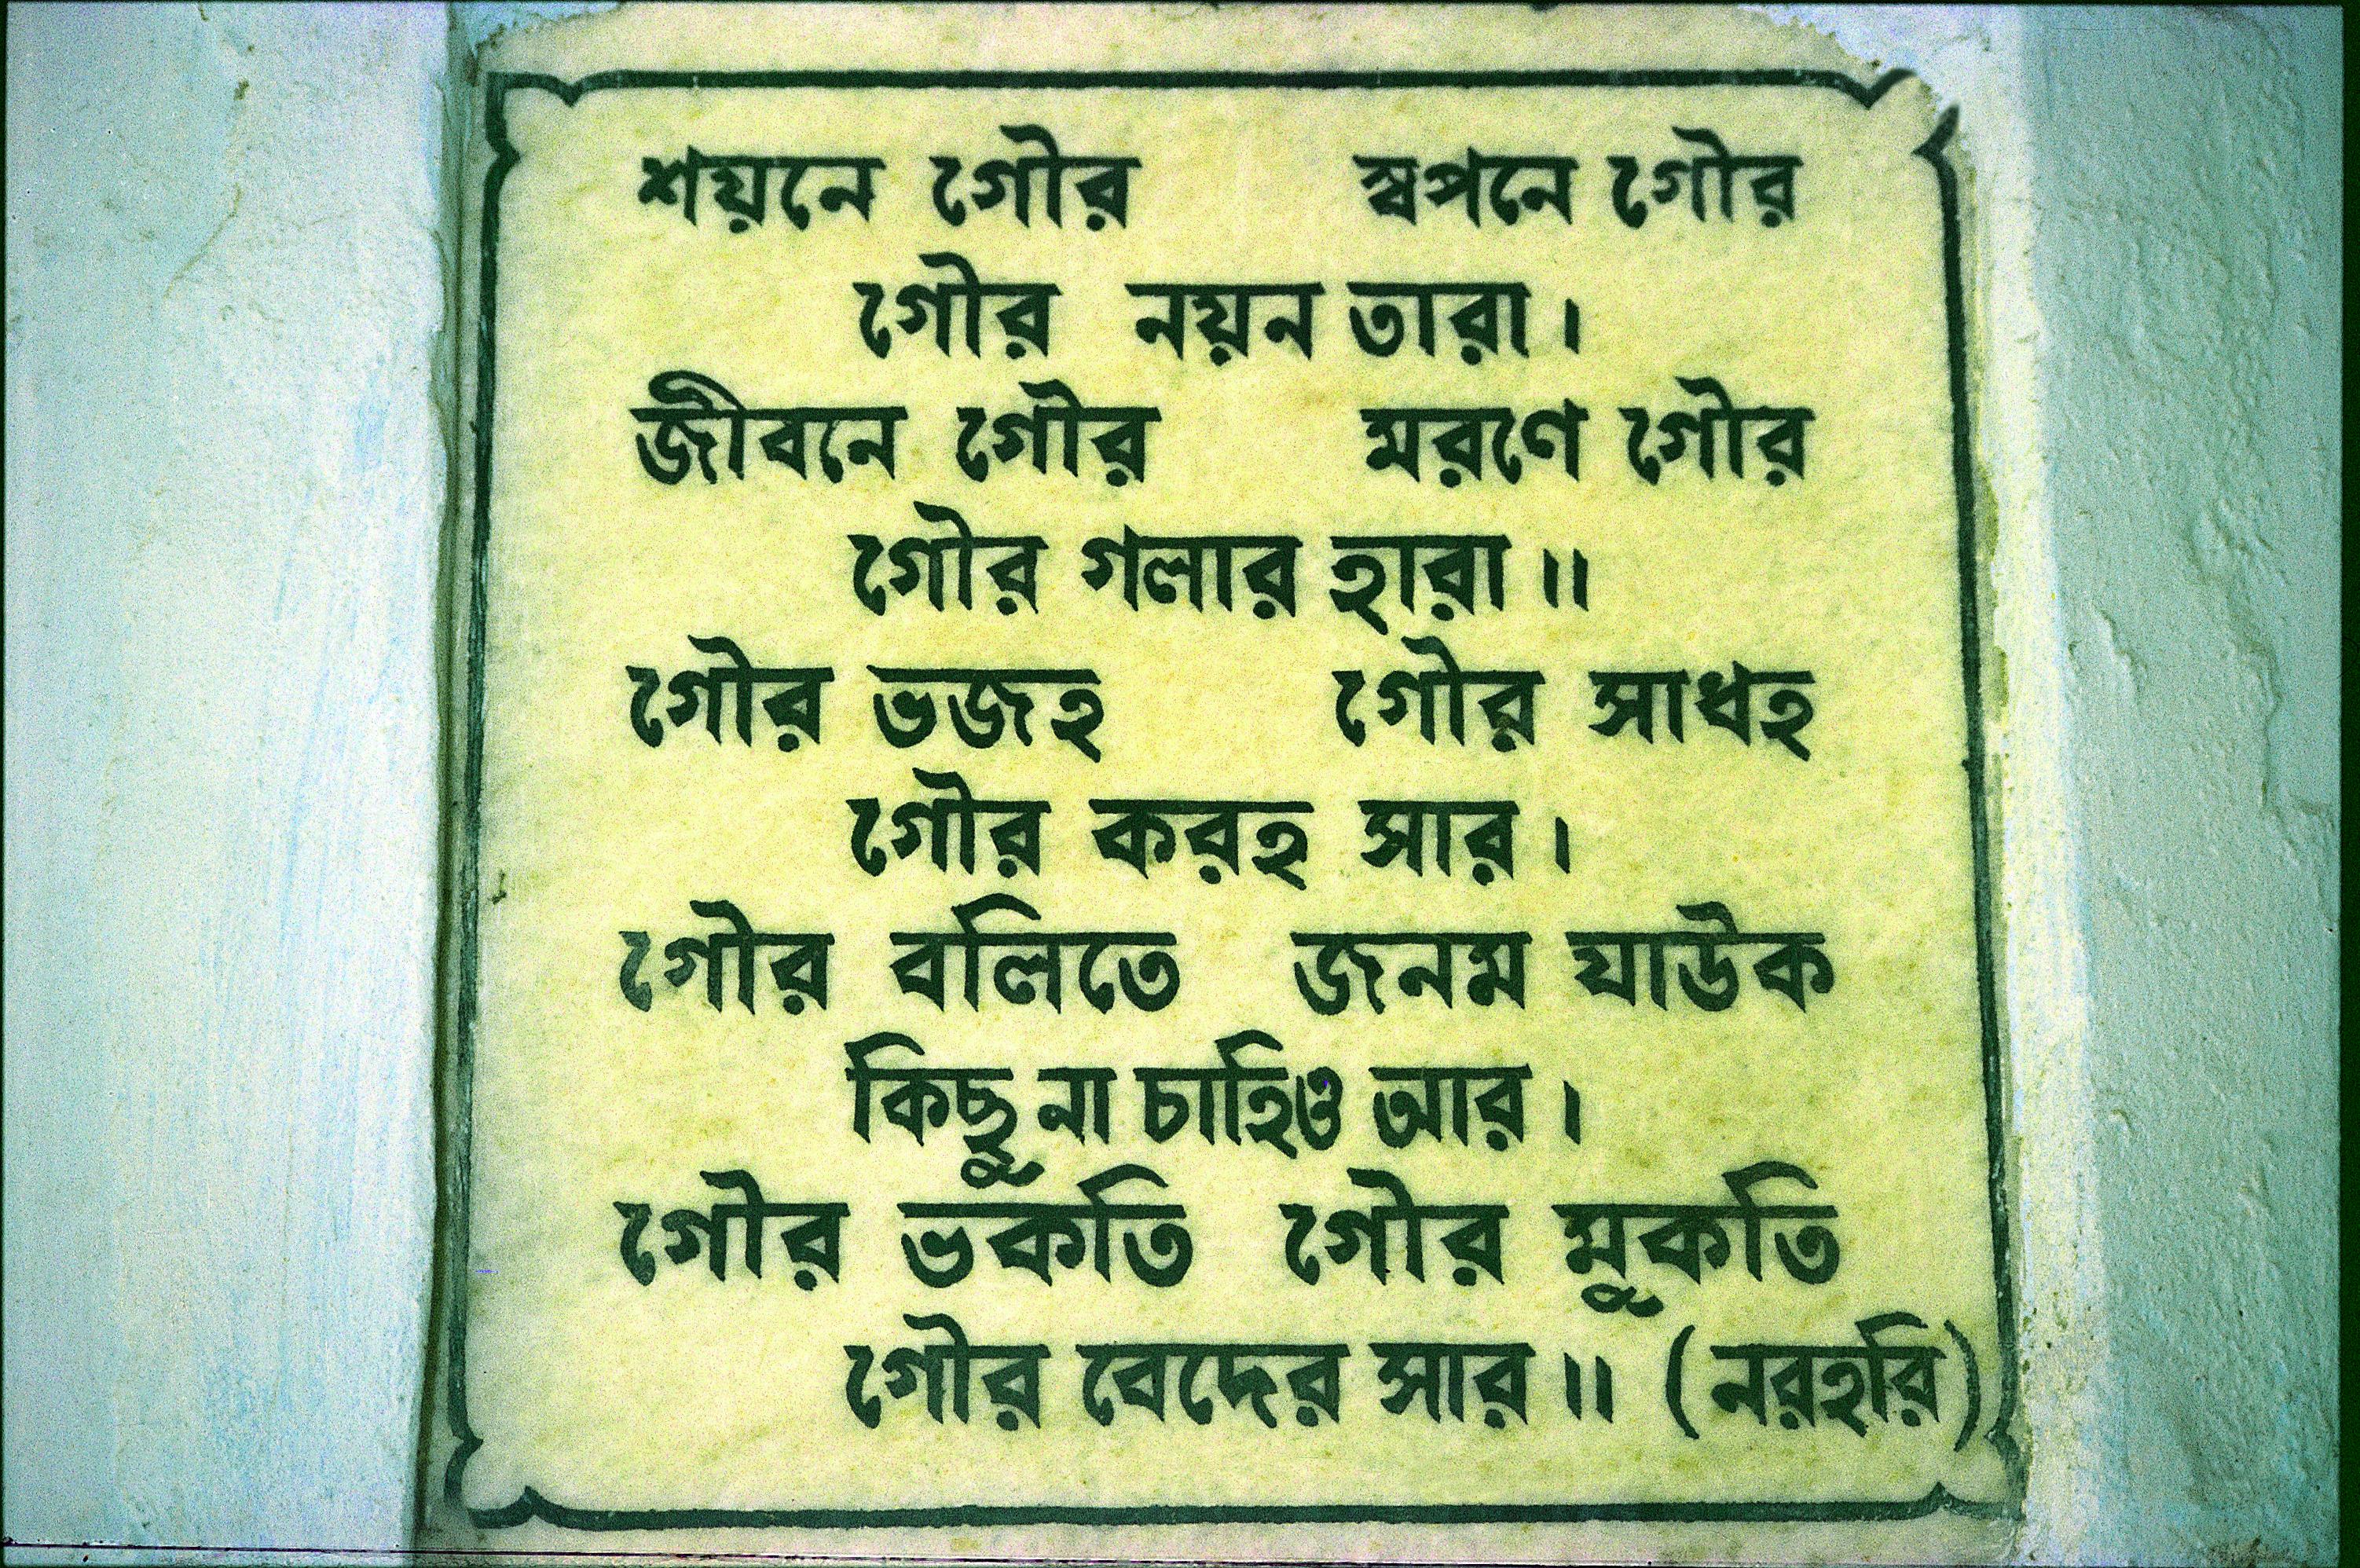 শয়নে গৌর স্বপনে গৌর
গৌর নয়ন তারা।
জীবনে গৌর মরণে গৌর
গৌর গলার হারা॥
গৌর ভজহ গৌর সাধহ
গৌর করহ সার।
গৌর বলিতে জনম যাউক
কিছু না চাহিও আর।
গৌর ভকতি গৌর মুকতি
গৌর বেদের সার॥ (নরহরি)